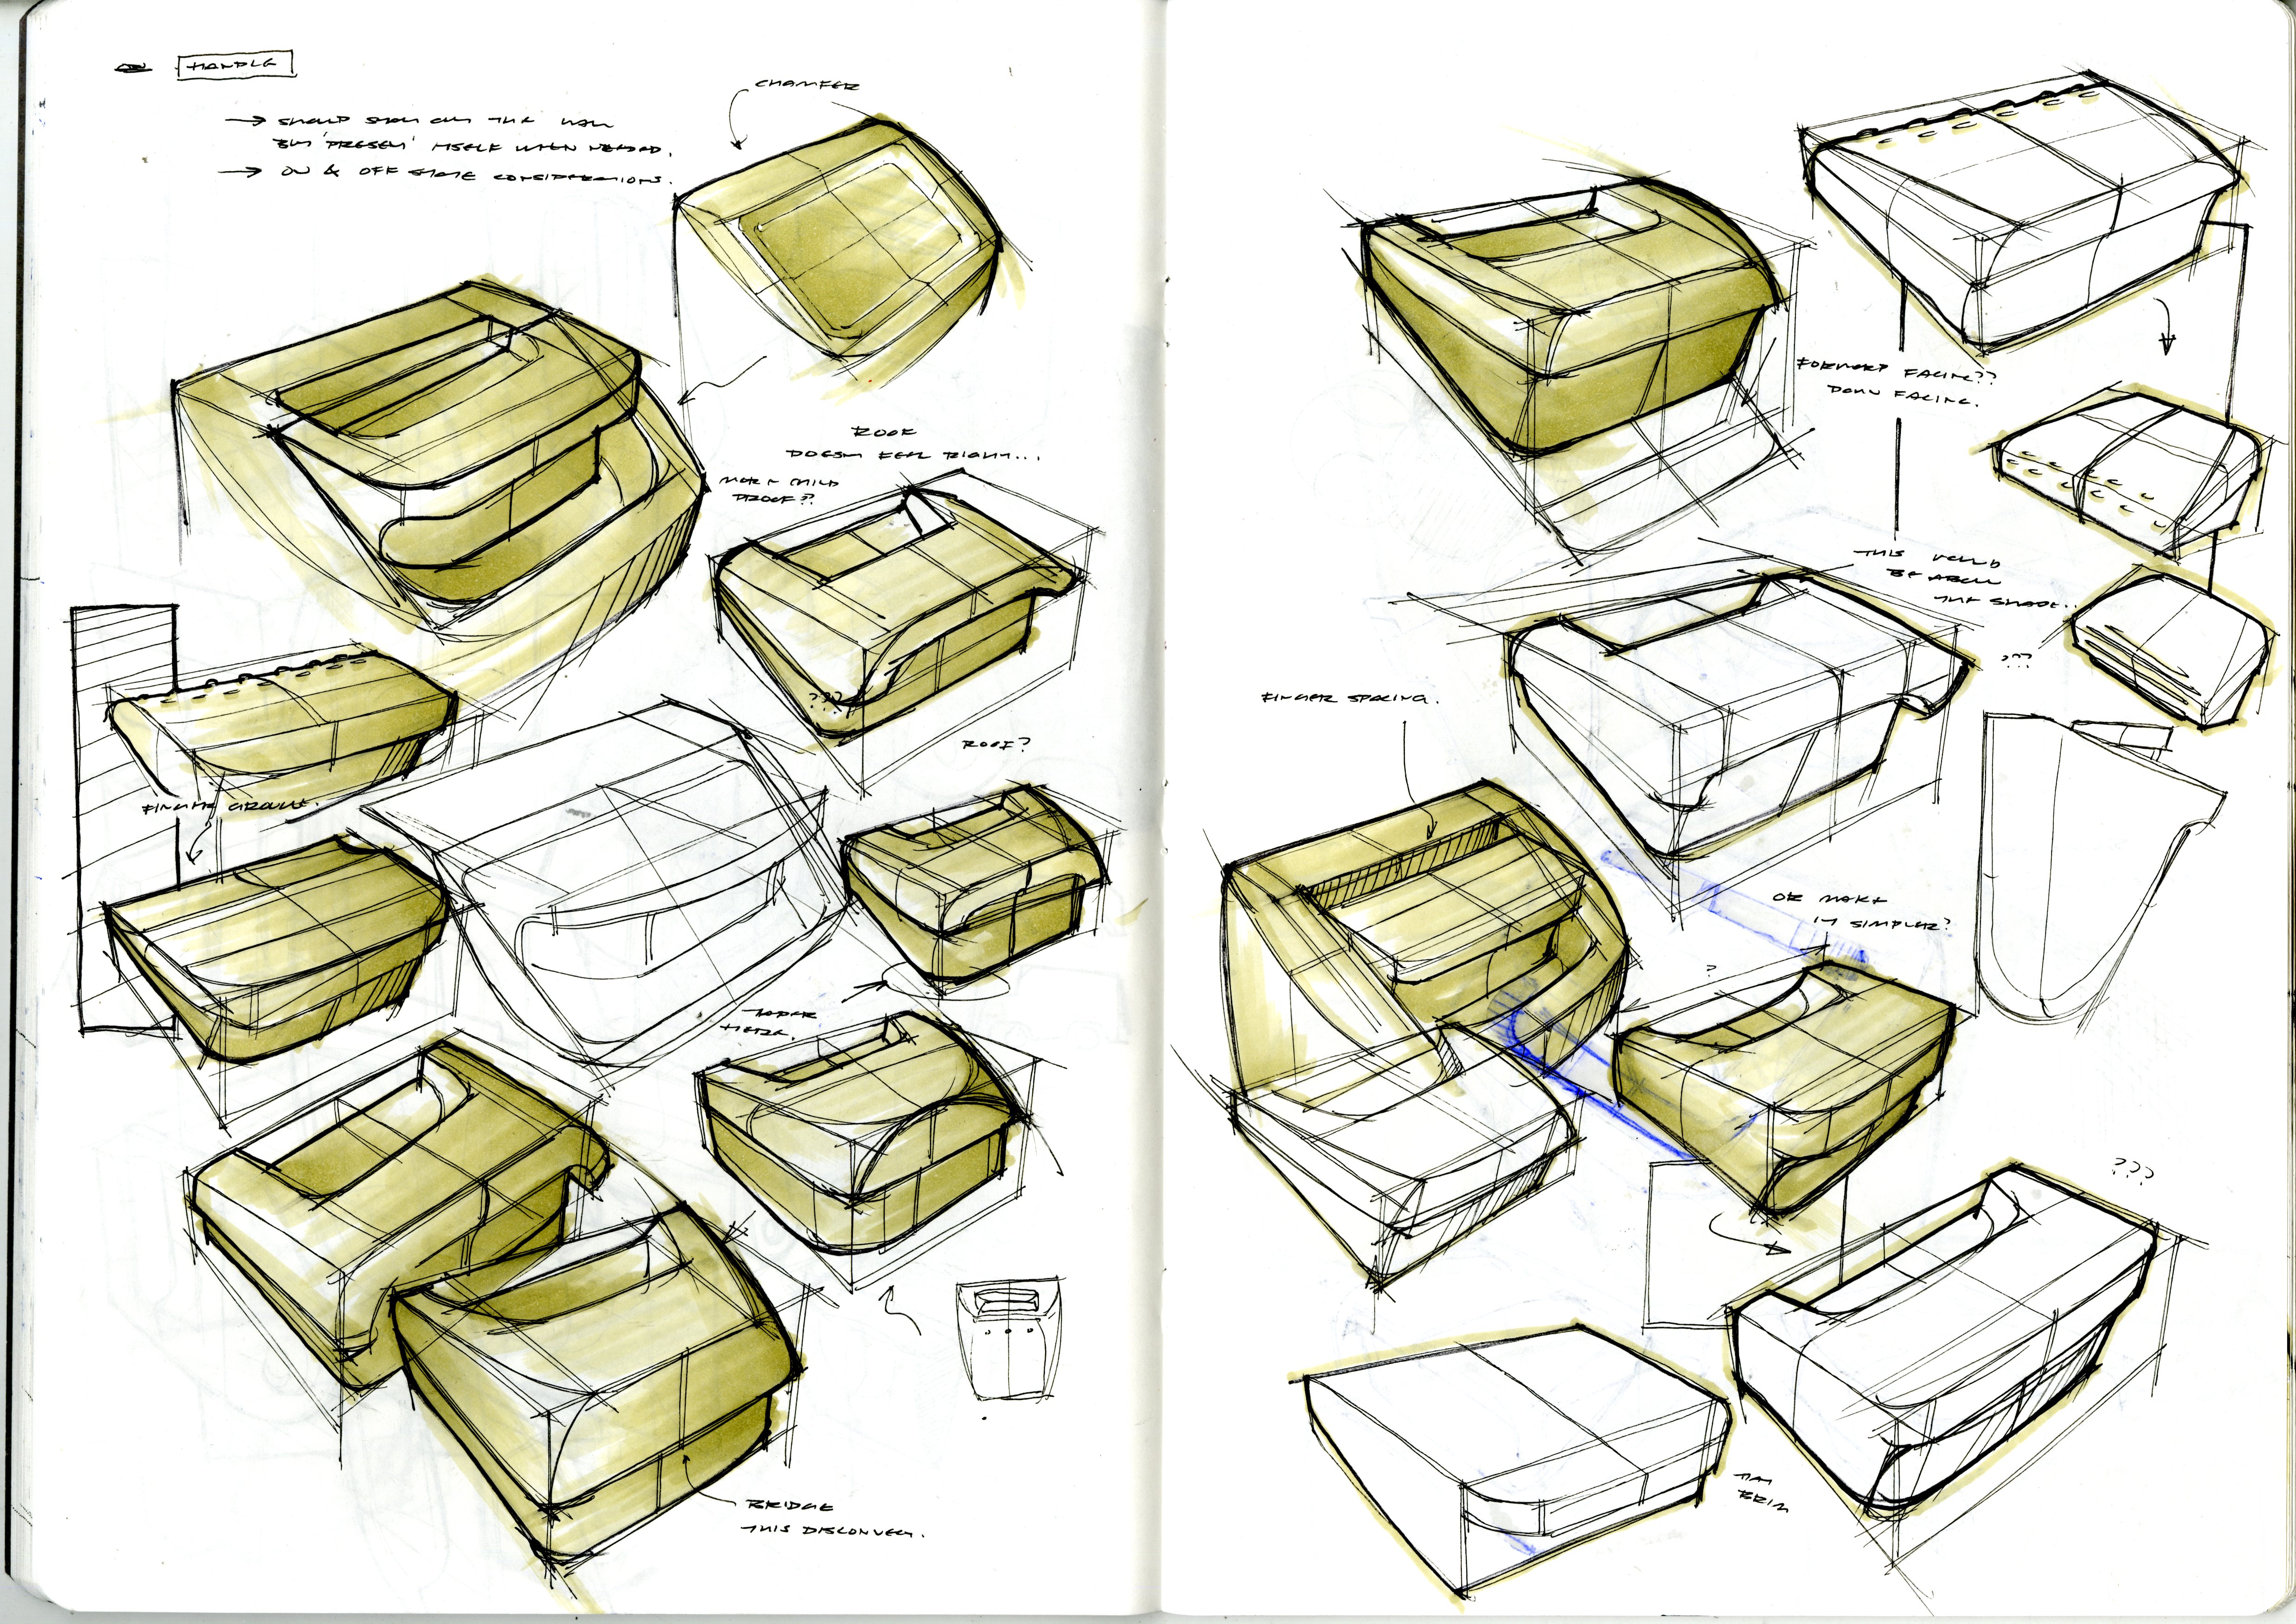 HANDLE
→ SHOULD STAY ON THE WALL
BUT 'PRESENT' ITSELF WHEN NEEDED.
→ ON & OFF STATE CONSIDERATIONS.
CHAMFER
ROOF
DOESN'T FEEL RIGHT...
MORE CHILD
PROOF??
???
ROOF?
FINGER GROOVE.
TAPER
HERE.
BRIDGE
THIS DISCONNECT.
FORWARD FACING??
DOWN FACING.
THIS WOULD
BE ABOVE
THE SHADE..
???
FINGER SPACING.
OR MAKE
IT SIMPLER?
?
???
HAT
BRIM